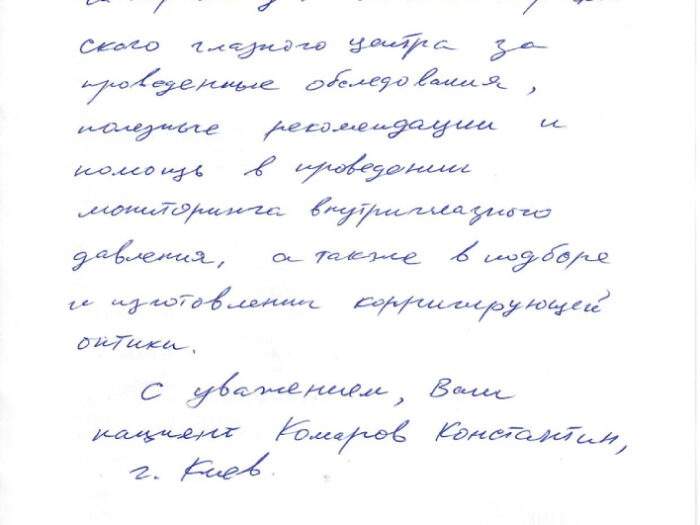 ского глазного центра за
проведенные обследования,
полезные рекомендации и
помощь в проведении
мониторинга внутриглазного
давления, а также в подборе
и изготовлении корригирующей
оптики.
С уважением, Ваш
пациент Комаров Константин,
г. Киев.